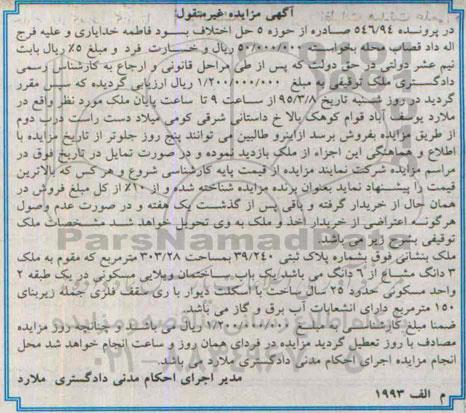 آگهی مزایده غیرمنقول
در پرونده ۵۴۶/۹۴ صادره از حوزه ۵ حل اختلاف بسود فاطمه خدایاری و علیه فرج
اله داد قصاب محله بخواسته ۵۰/۰۰۰/۰۰۰ ریال و خسارت فرد و مبلغ ۵٪ ریال بابت
نیم عشر دولتی در حق دولت که پس از طی مراحل قانونی و ارجاع به کارشناس رسمی
دادگستری ملک ترقیفی به مبلغ ۱/۲۰۰/۰۰۰/۰۰۰ ریال ارزیابی گردیده که سپس مقرر
گردید در روز شنبه تاریخ ۹۵/۳/۸ از ساعت ۹ تا ساعت پایان ملک مورد نظر واقع در
ملارد یوسف آباد قوام کوهک بالا خ داستانی شرقی کومی میلاد دست راست درب دوم
از طریق مزایده بفروش برسد ازاینرو طالبین می توانند پنج روز جلوتر از تاریخ مزایده با
اطلاع و هماهنگی این اجراء از ملک بازدید نموده و در صورت تمایل در تاریخ فوق در
مراسم مزایده شرکت نمایند مزایده از قیمت پایه کارشناسی شروع و هر کس که بالاترین
قیمت را پیشنهاد نماید بعنوان برنده مزایده شناخته شده و از ۱۰٪ از کل مبلغ فروش در
همان حال از خریدار گرفته و باقی پس از گذشت یک هفته و در صورت عدم وصول
هرگونه اعتراضی از خریدار اخذ و ملک به وی تحویل خواهد شد مشخصات ملک
توقیفی بشرح زیر می باشد
ملک بنشانی فوق بشماره پلاک ثبتی ۳۹/۲۴۰ بمساحت ۳۰۳/۲۸ مترمربع که مقوم به ملک
۳ دانگ مشاع از ۶ دانگ می باشد/یک باب ساختمان ویلایی مسکونی در یک طبقه ۲
واحد مسکونی حدود ۲۵ سال ساخت با اسکلت دیوار با ری سقف فلزی جمله زیربنای
۱۵۰ مترمربع دارای انشعابات آب برق و گاز می باشد.
ضمنا مبلغ کارشناسی به مبلغ ۱/۲۰۰/۰۰۰/۰۰۰ ریال می باشد. و چنانچه روز مزایده
مصادف با روز تعطیل گردید مزایده در فردای همان روز و ساعت انجام خواهد شد محل
انجام مزایده اجرای احکام مدنی دادگستری ملارد می باشد.
مدیر اجرای احکام مدنی دادگستری ملارد
م الف ۱۹۹۳
ParsNamadData